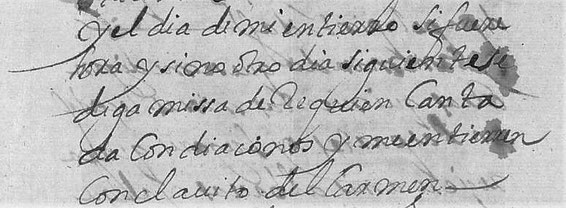 y el dia de mi entierro si fuere
hora y sino otro dia siguiente se
diga missa de Requien Canta
da Con diaconos y me entierren
Con el auito del Carmen